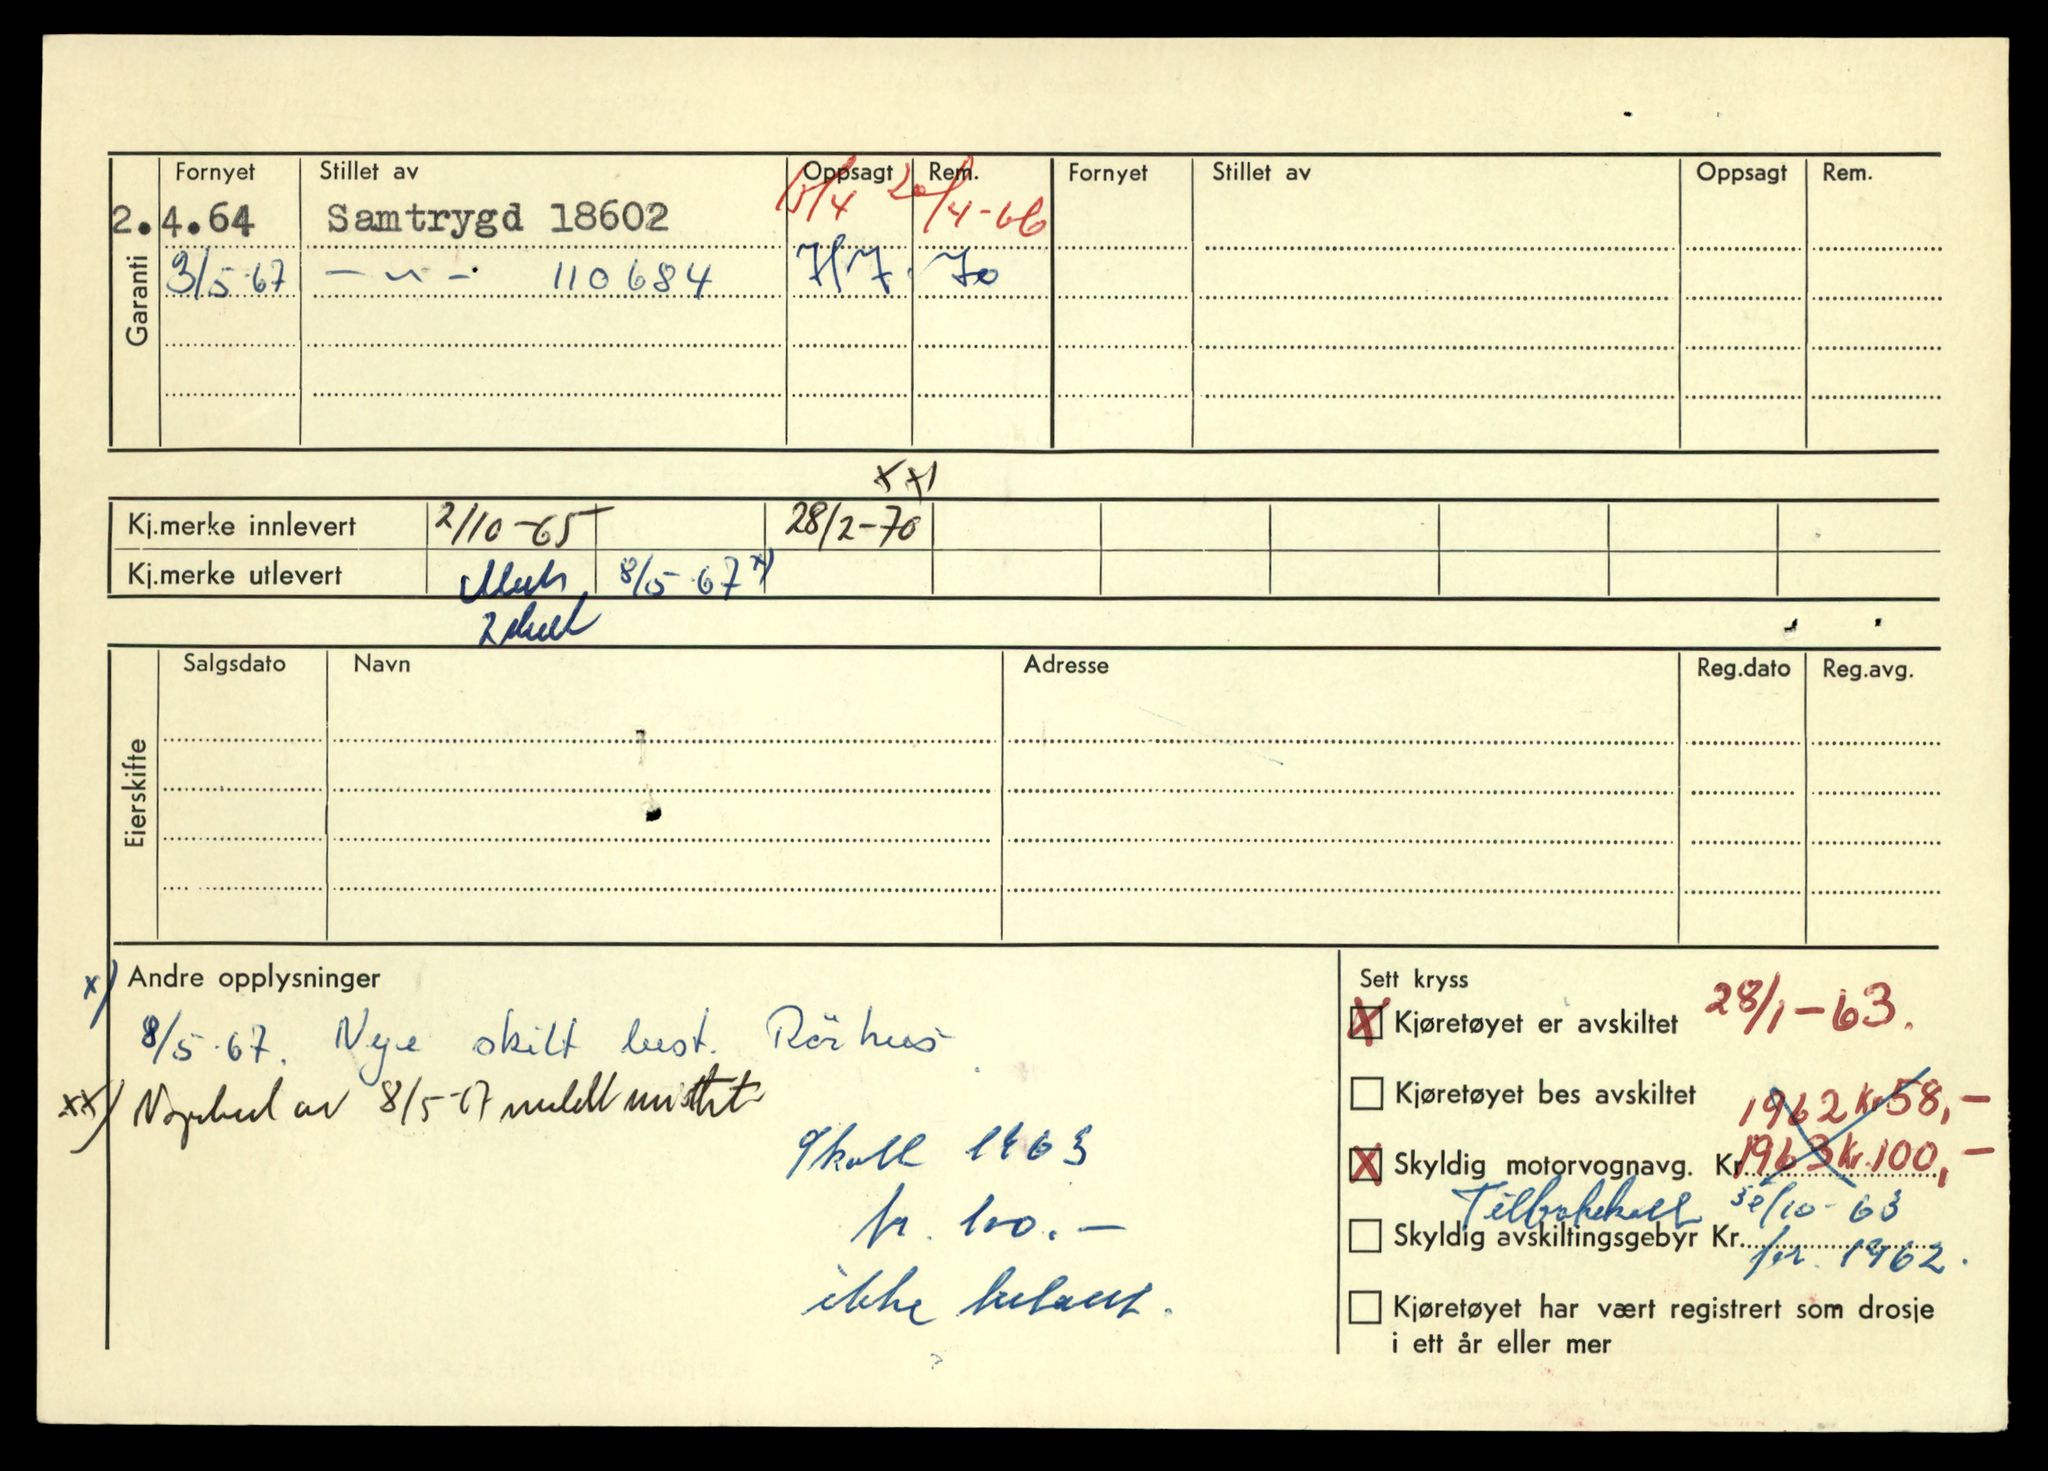 Garanti
Fornyet Stillet av Oppsagt Rem. Fornyet Stillet av Oppsagt Rem.
2.4.64 Samtrygd 18602 15/4 20/4-66
3/5-67 — " — 110684 7/7. 70
xx)
Kj.merke innlevert 2/10-65 28/2-70
Kj.merke utlevert 8/5-67 x)
2 skilt
Eierskifte
Salgsdato Navn Adresse Reg.dato Reg.avg.
x) Andre opplysninger
8/5-67. Nye skilt best. Rörhus
xx) av 8/5-67 meldt mistet
Skatt 1963
kr. 100.—
ikke betalt.
Sett kryss
X Kjøretøyet er avskiltet 28/1-63.
Kjøretøyet bes avskiltet
1962 Kr 58,—
X Skyldig motorvognavg. Kr. 1963 Kr. 100,—
Tilbakekalt 30/10-63
Skyldig avskiltingsgebyr Kr. for 1962.
Kjøretøyet har vært registrert som drosje
i ett år eller mer